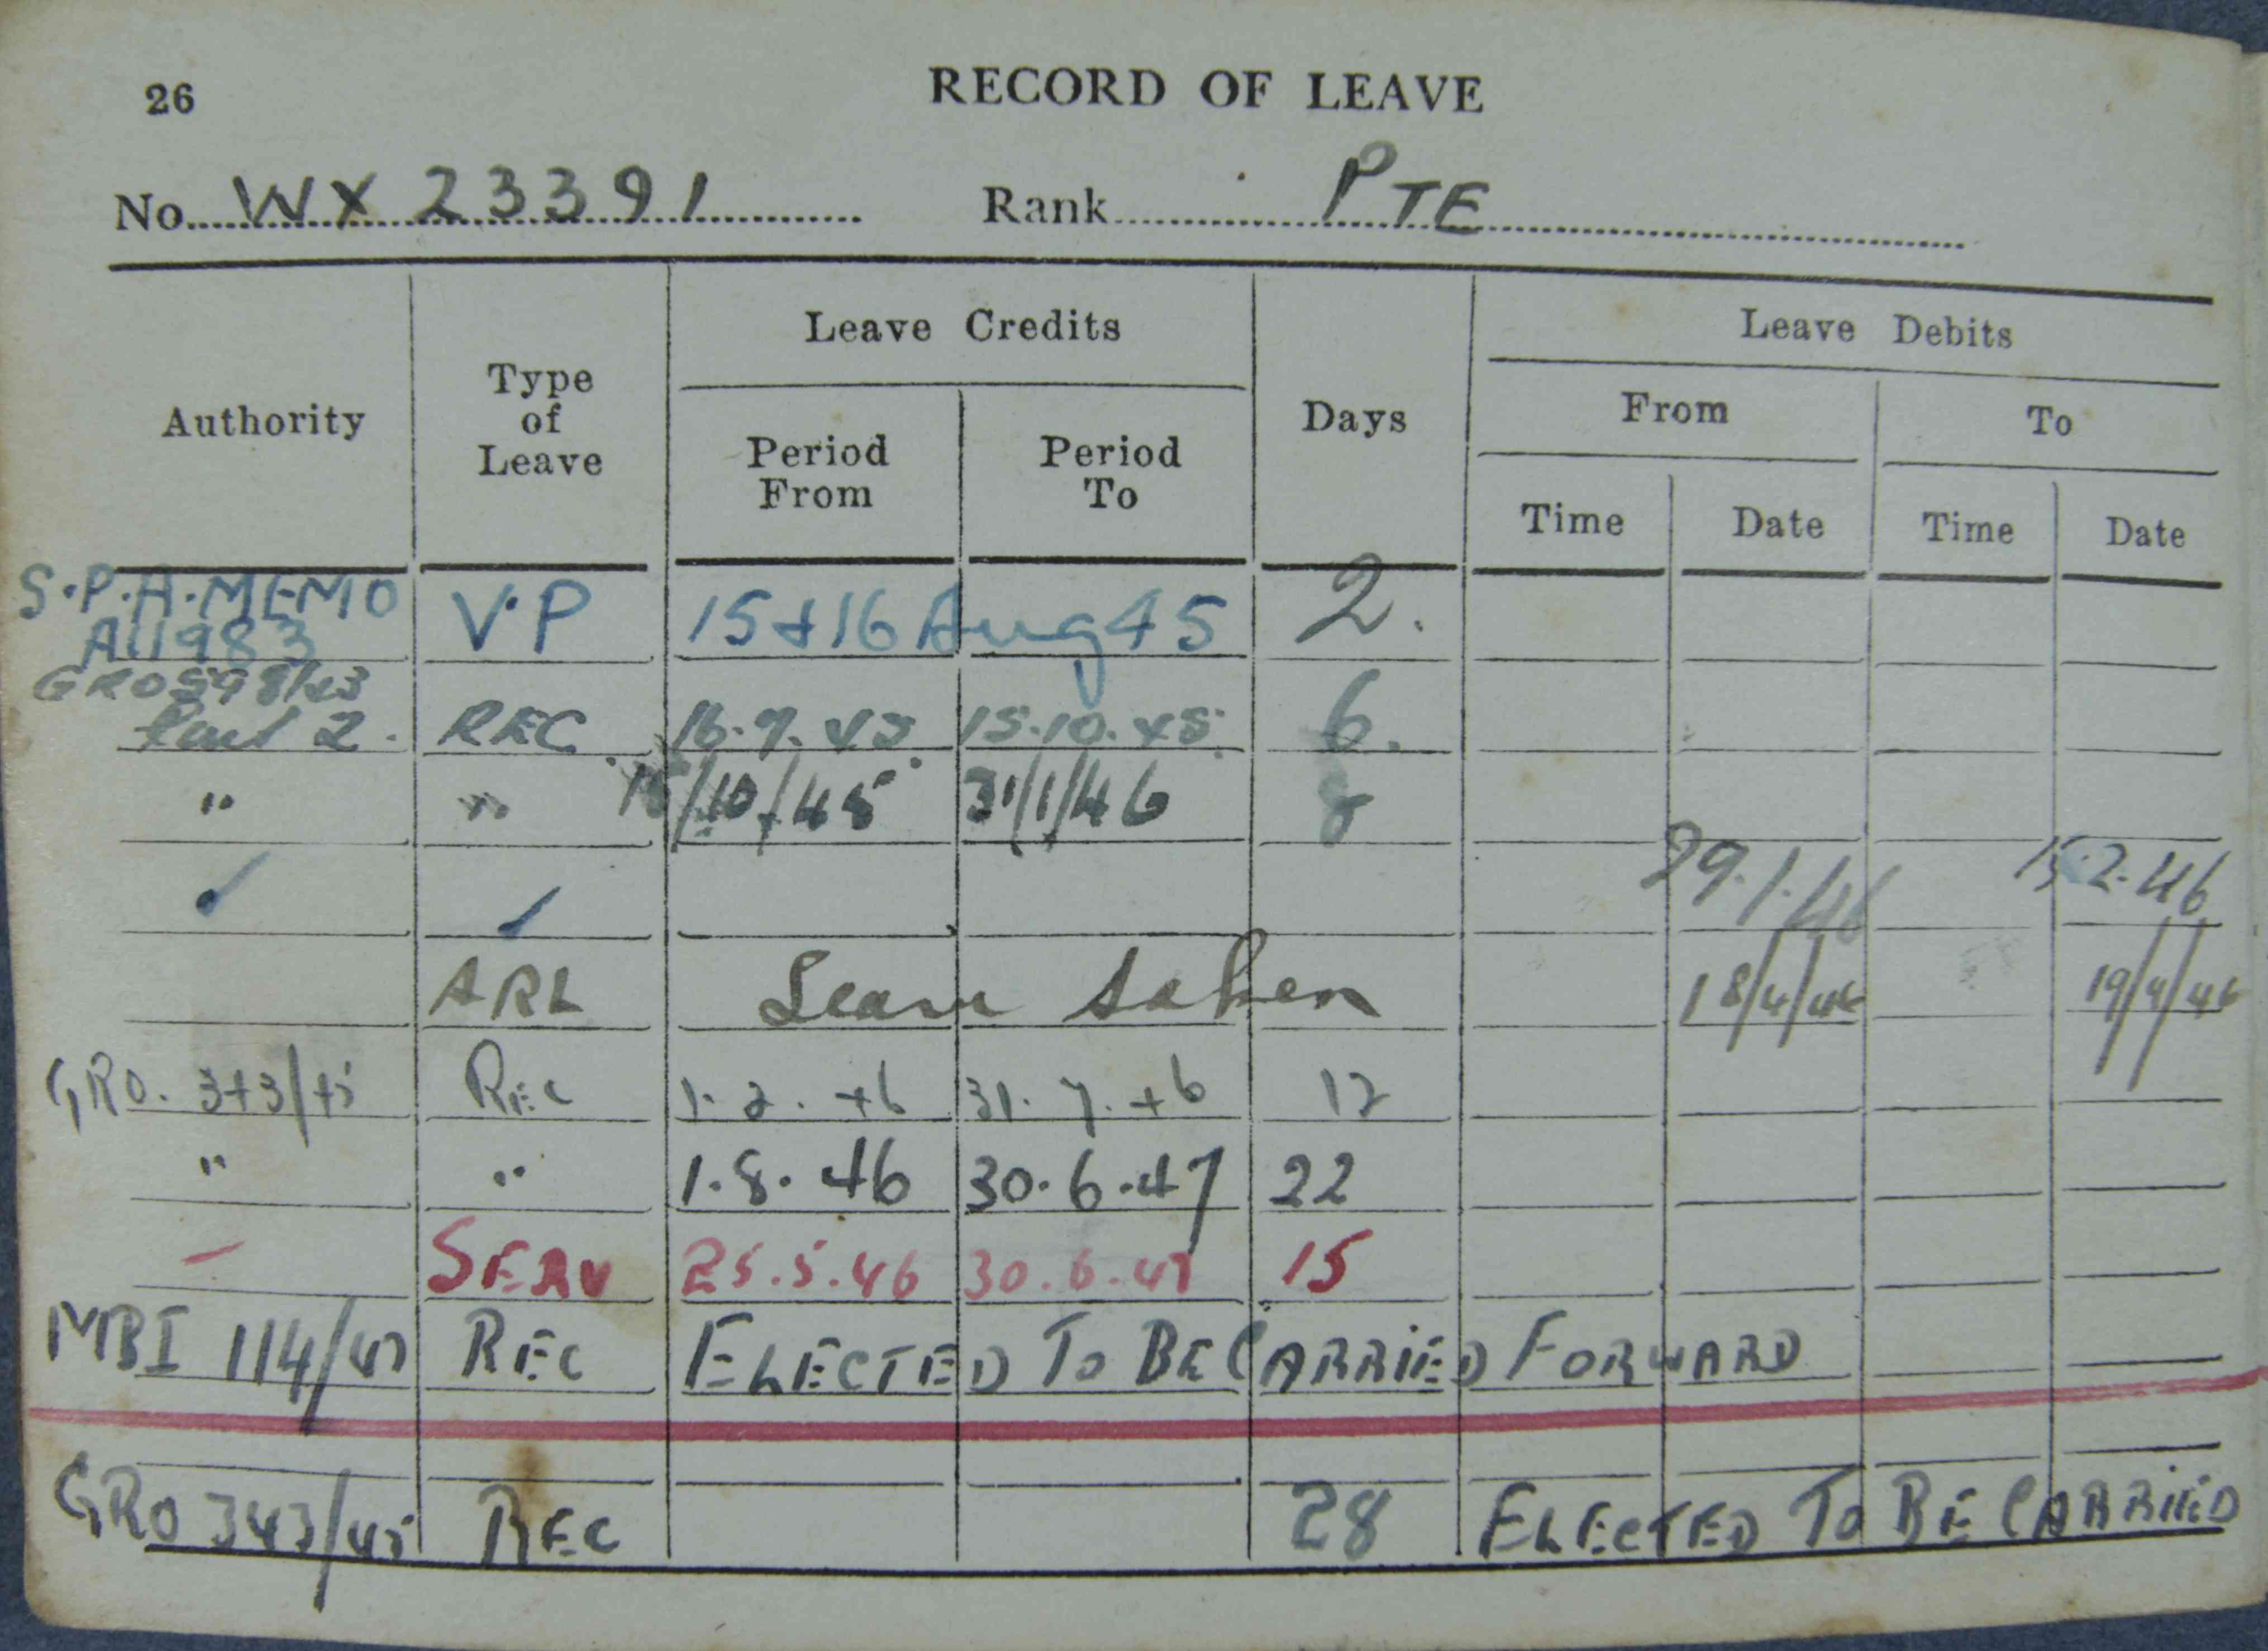 26
RECORD OF LEAVE
No. WX 23391 Rank PTE
Authority
Type of Leave
Leave Credits
Period From
Period To
Days
Leave Debits
From
To
Time
Date
Time
Date
S.P.A. MEMO A11983 V.P 15 + 16 Aug 45 2.
Part 2. REC 15.10.45. 6.
" " /10/45 31/1/46 8
29.1.46 2.46
ARL Leave taken 18/4/46 19/4/46
GRO. 343/45 REC 1.2.46 31.7.46 12
" " 1.8.46 30.6.47 22
— SERV 25.5.46 30.6.47 15
MBI 114/47 REC ELECTED TO BE CARRIED FORWARD
GRO 343/45 REC 28 ELECTED TO BE CARRIED